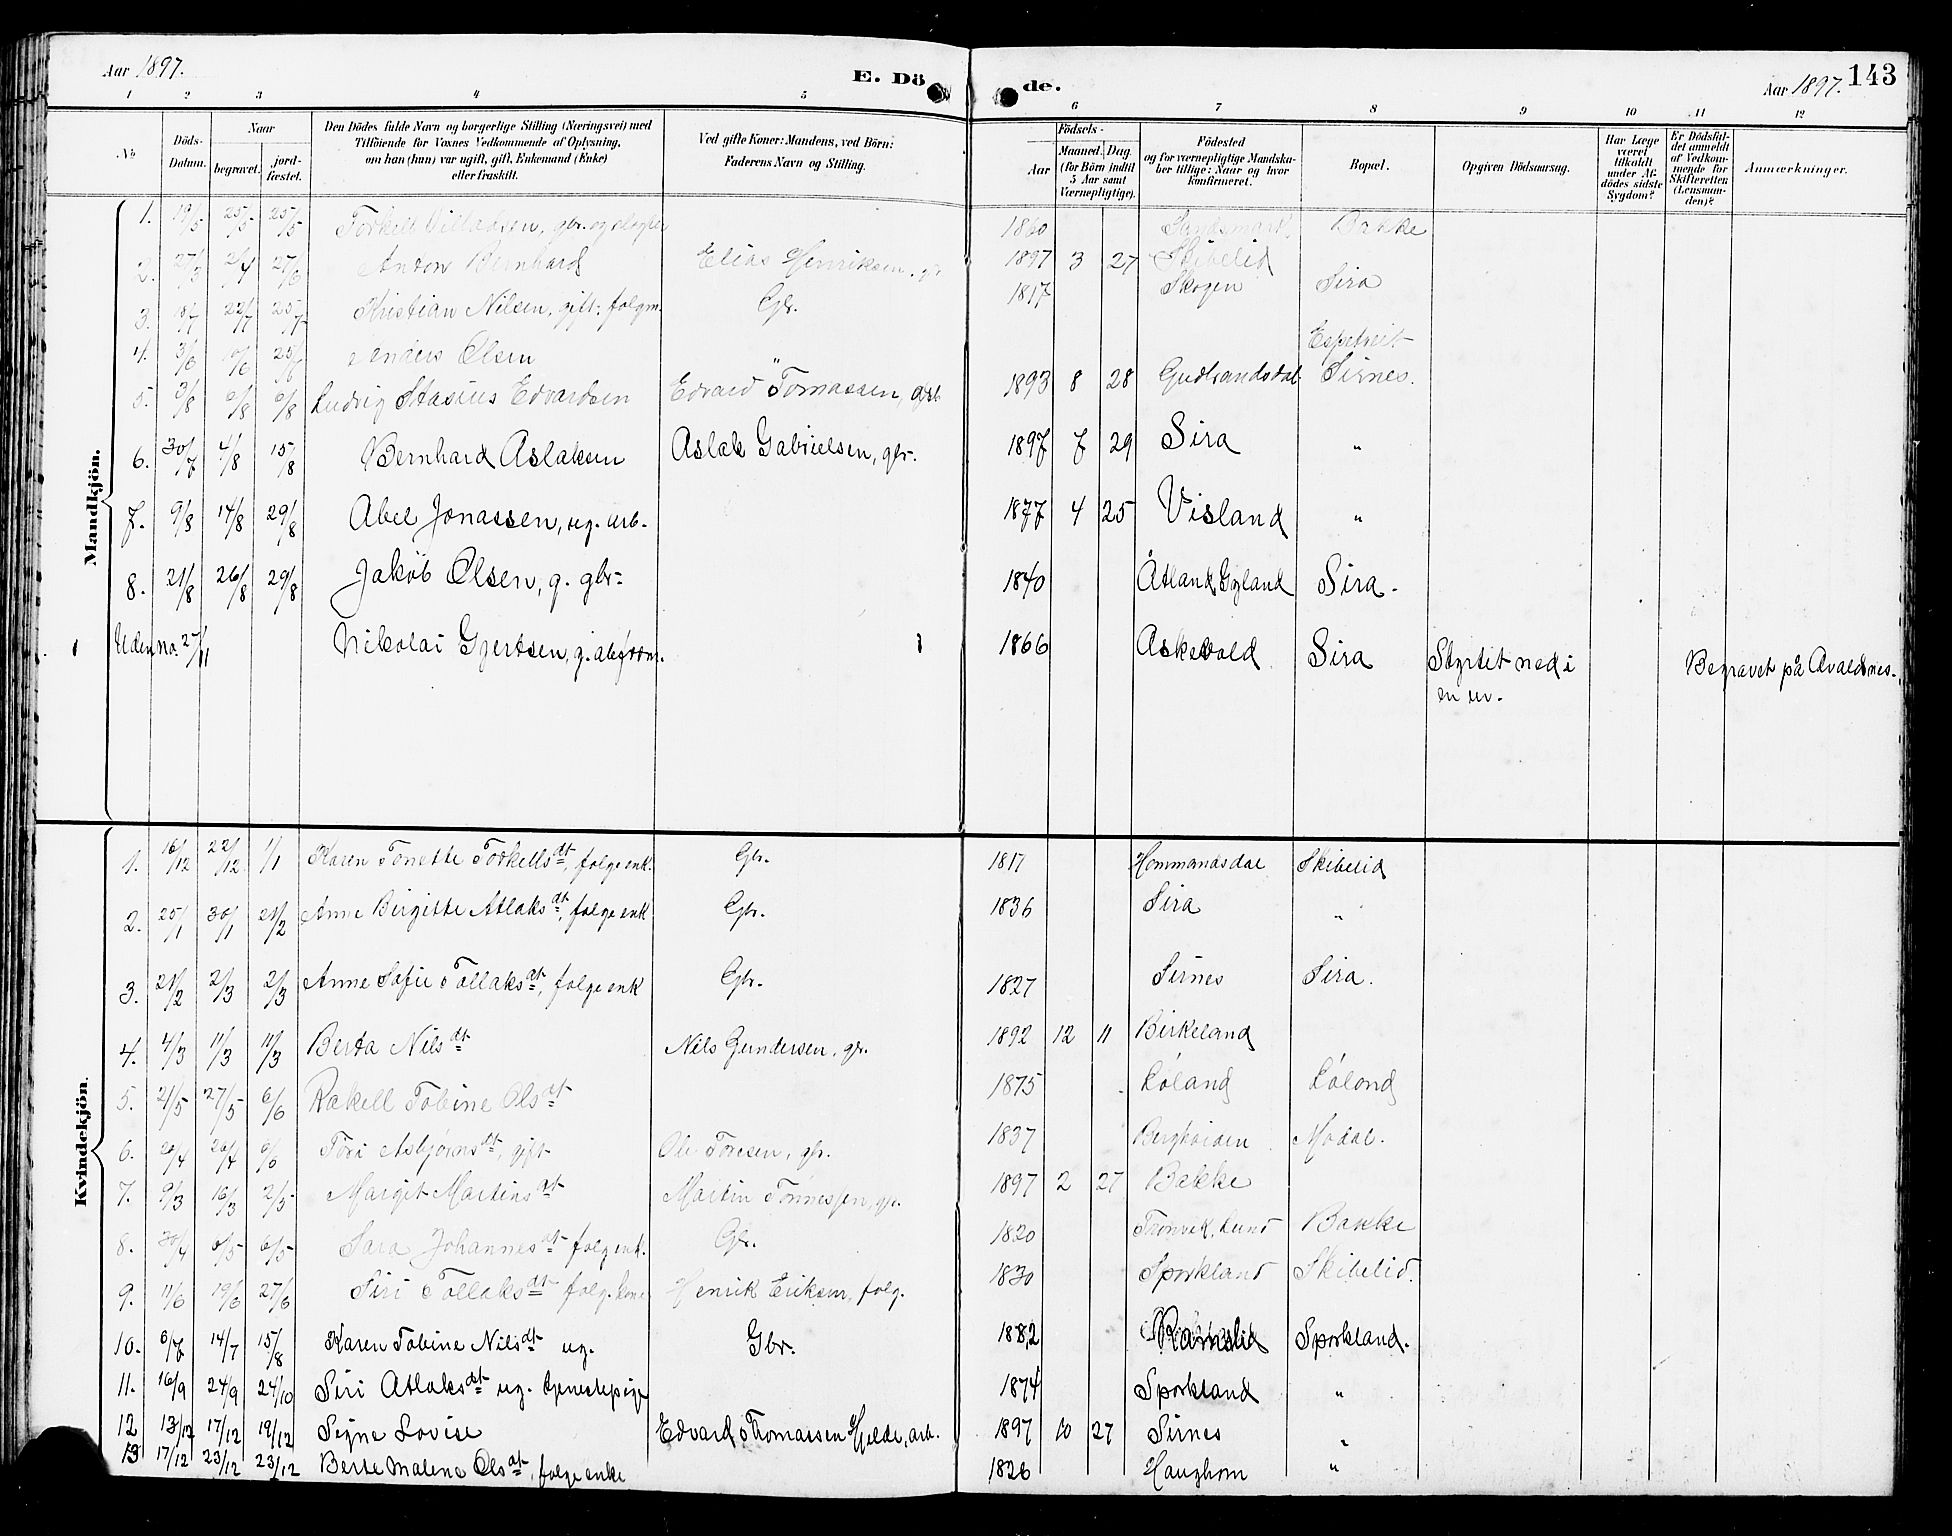 Aar 1897. E. Dö de. Aar 1897. 143
1 2 3 4 5 6 7 8 9 10 11 12
No Döds-Datum. Naar begravet. jord-fæstet. Den Dödes fulde Navn og borgerlige Stilling (Næringsvei) med Tilföiende for Voxnes Vedkommende af Oplysning, om han (hun) var ugift, gift, Enkemand (Enke) eller fraskilt. Ved gifte Koner: Mandens, ved Börn: Faderens Navn og Stilling. Födsels- Aar Maaned. Dag. (for Börn indtil 5 Aar samt Værnepligtige). Födested og for værnepligtige Mandska-ber tillige: Naar og hvor konfirmeret. Bopæl. Opgiven Dödsaarsag. Har Læge været tilkaldt under Af-dödes sidste Sygdom? Er Dödsfal-det anmeldt af Vedkom-mende for Skifteretten (Lensman-den)? Anmærkninger.
Mandkjön.
1. 19/5 25/5 25/5 Torkell 1860 Bakke
2. 27/3 2/4 27/6 Anton Bernhard Elias Henriksen, gr. 1897 3 27 Skibelid
3. 18/7 22/7 25/7 Kristian Nilsen, gift. folgm. Gbr. 1817 Skogen Sira
4. 3/6 10/6 25/6 Anders Olsen " Espetveit
5. 3/8 6/8 6/8 Ludvig Stasius Edvardsen Edvard Tomassen, arb 1893 8 28 Gudbrandsdal Sirnes.
6. 30/7 4/8 15/8 Bernhard Aslaksen Aslak Gabrielsen, gbr. 1897 7 29 Sira "
7. 9/8 14/8 29/8 Abel Jonassen, ug. arb. 1877 4 25 Visland "
8. 21/8 26/8 29/8 Jakob Olsen, g. gbr. 1840 Åtland, Gyland Sira.
Uden no. 27/11 Nikolai Gjertsen, g. 1866 Askevold Sira Styrtet ned i en ur. Begravet på Avaldsnes.
Kvindekjön.
1. 16/12 22/12 1/1 Karen Tonette Torkellsdt, folgeenk. Gbr. 1817 Hommandsdal Skibelid
2. 25/1 30/1 21/2 Anne Birgitte Atlaksdt, folgeenk Gbr. 1836 Sira "
3. 21/2 2/3 2/3 Anne Sofie Tollaksdt, folgeenk Gbr. 1827 Sirnes Sira.
4. 4/3 11/3 11/3 Berta Nilsdt Nils Gundersen, gr. 1892 12 11 Birkeland
5. 21/5 27/5 6/6 Rakell Tobine Olsdt 1875 Löland Löland
6. 20/4 26/4 6/6 Tori Asbjørnsdt, gift Ole Toresen, gr. 1837 Modal.
7. 9/3 16/3 2/5 Margit Martinsdt Martin Tønnessen, gr. 1897 2 27 Bakke
8. 30/4 6/5 6/5 Sara Johannesdt folgenk. Gbr. 1820 Tronvik, Lund Bakke
9. 11/6 19/6 27/6 Siri Tollaksdt folg.kone Henrik Eriksen, folg. 1830 Sporkland Skibelid.
10. 6/7 14/7 15/8 Karen Tobine Nilsdt ug. Gbr. 1882 Ramslid Sporkland.
11. 16/9 24/9 24/10 Siri Atlaksdt ug. tjenestepige 1874 Sporkland "
12 13/12 17/12 19/12 Signe Lovise Edvard Thomassen Hjelde, arb. 1897 10 27 Sirnes "
13 17/12 23/12 23/12 Berte Malene Olsdt, folgeenke 1826 Haughom "